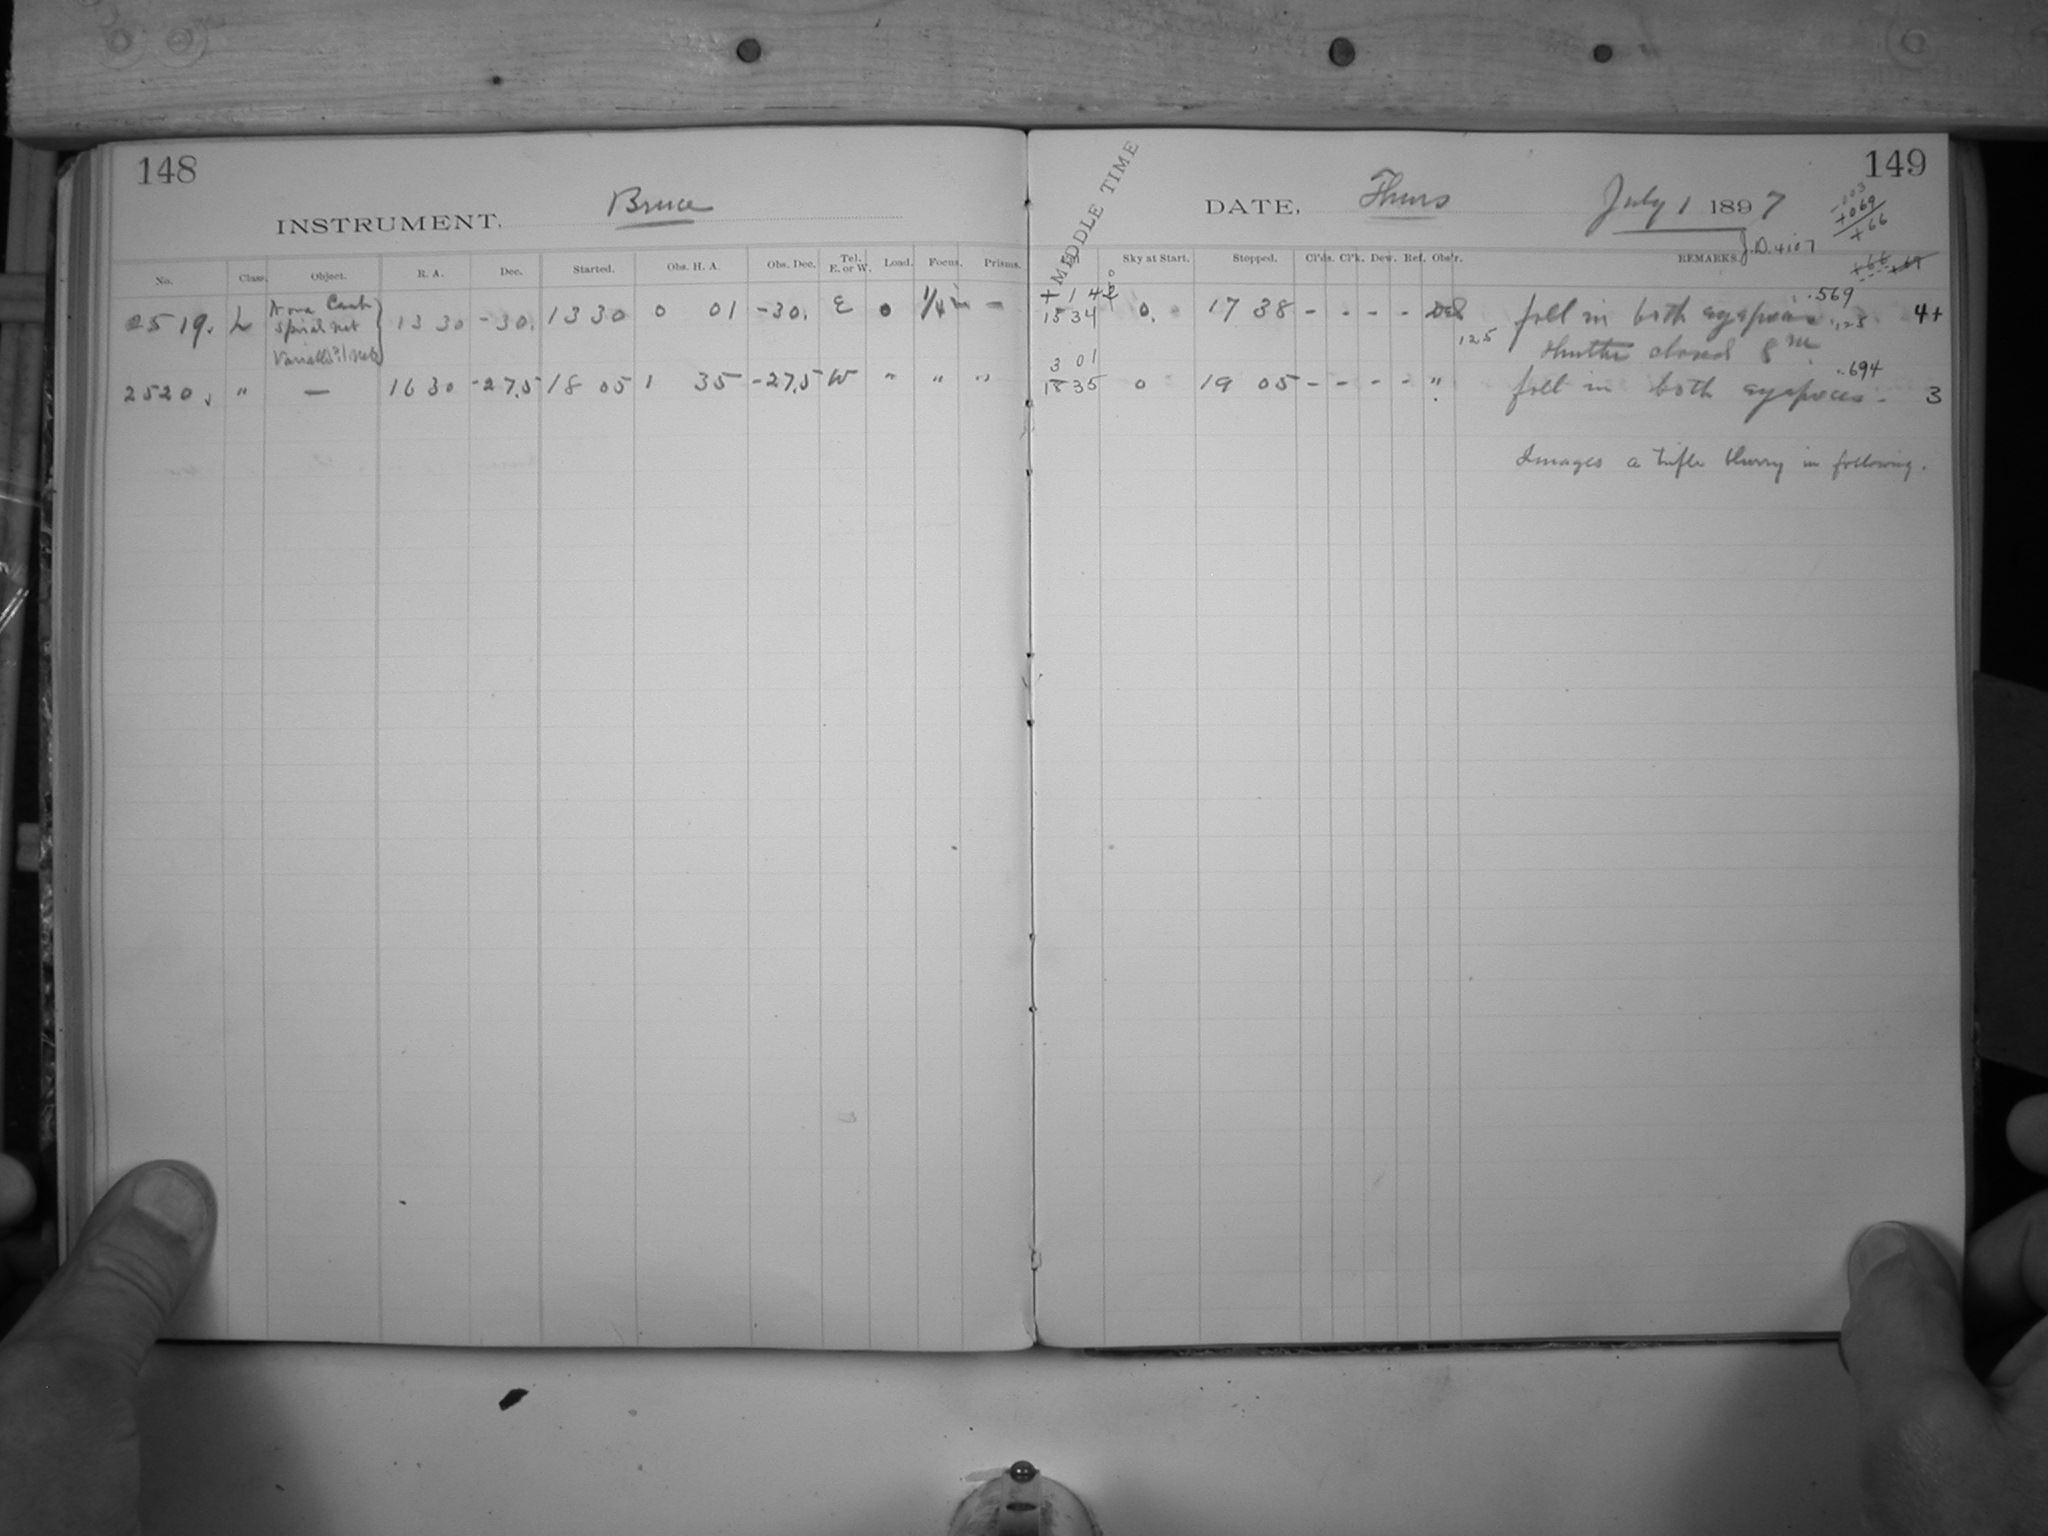 148
INSTRUMENT, Bruce
No. Class. Object. R. A. Dec. Started. Obs. H. A. Obs. Dec. Tel. E. or W. Load. Focus. Prisms.
2519. L Nova Cent 13 30 -30. 13 30 0 01 -30. E 0 1/4 in -
Spiral neb
2520. " — 16 30 -27.5 18 05 1 35 -27.5 W " " "
149
MIDDLE TIME
DATE, Thurs July 1 1897
J.D. 4107
+069
+66
Sky at Start. Stopped. Cl'ds. Cl'k. Dew. Ref. Obs'r. REMARKS.
+ 1 42
15 34 0. 17 38 - - - - foll in both eyepieces .569 4+
125
Shutter closed 8m
3 01
18 35 0 19 05 - - - - " foll in both eyepieces. .694 3
Images a trifle blurry in following.